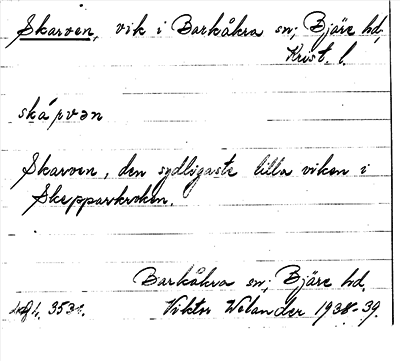 Skarven, vik i Barkåkra sn; Bjäre hd,
Krist. l.
skárvən
Skarven, den sydligaste lilla viken i
Skepparkroken.
Barkåkra sn; Bjäre hd.
Viktor Welander 1938-39.